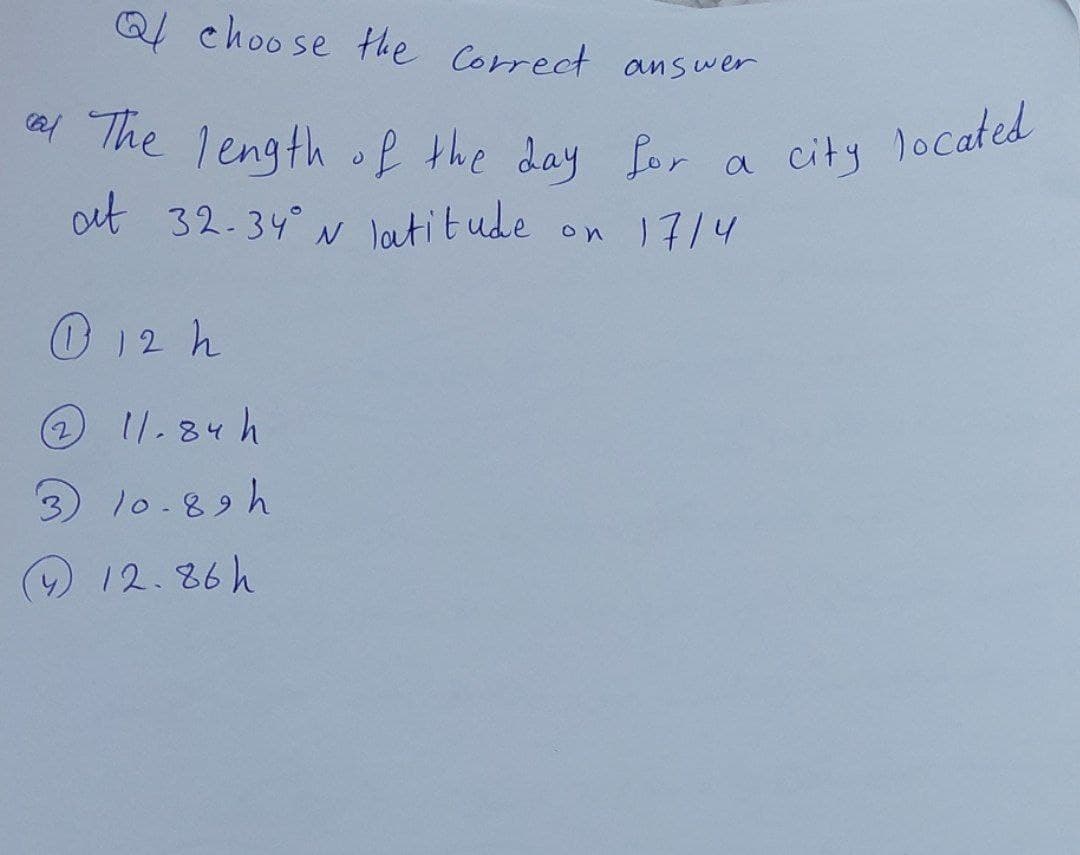 Q/ choose the correct answer
a/ The length of the day for a city located
at 32.34° N latitude on 17/4
① 12 h
② 11.84 h
③ 10.89 h
④ 12.86 h